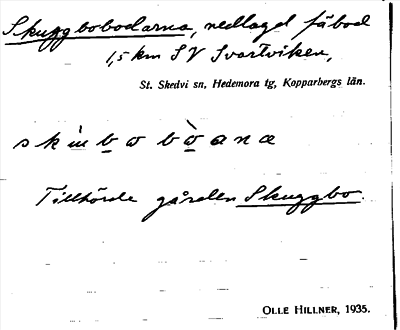 Skuggbobodarna, nedlagd fäbod
1,5 km SV Svartviken,
St. Skedvi sn, Hedemora tg, Kopparbergs län.
Tillhörde gården Skuggbo.
OLLE HILLNER, 1935.